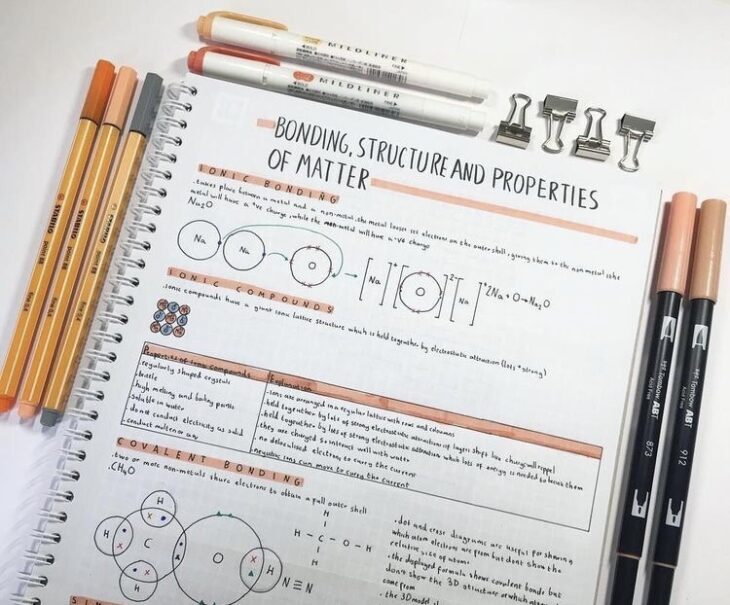 MILDLINER
MILDLINER
STABILO
point 88
fine 0,4
STABILO
point 88
fine 0,4
STABILO
point 88
fine 0,4
BONDING, STRUCTURE AND PROPERTIES
OF MATTER
IONIC BONDING
.takes place between a metal and a non-metal. the metal looses
electrons on the outer shell, giving them to the non metal. the
metal will have a +ve charge, while the non-metal will have a -ve charge
Na₂O
Na Na O [Na]⁺ [O]²⁻ [Na]⁺ 2Na + O → Na₂O
IONIC COMPOUNDS
.ionic compounds have a giant ionic lattice structure which is held together by electrostatic attraction (lots + strong)
Properties of ionic compounds
.regularly shaped crystals
.brittle
.high melting and boiling points
.soluble in water
.do not conduct electricity as solid
.conduct molten or aq
Explanation
.ions are arranged in a regular lattice with rows and columns
.held together by lots of strong electrostatic attractions
.held together by lots of strong electrostatic attraction which lots of energy is needed to break them
.they are charged so interact well with water
.no delocalised electrons to carry the current
ions can move to carry the current
COVALENT BONDING
.two or more non-metals share electrons to obtain a full outer shell
.CH₄O
H
H C O H
H
H
H - C - O - H
H
N ≡ N
.dot and cross diagrams are useful for showing
which atom electrons are from but dont show the
relative size of atoms
.the displayed formula shows covalent bonds but
dont show the 3D structure or which atoms
came from
.the 3D model
Tombow ABT
Acid Free
873
Tombow ABT
Acid Free
912